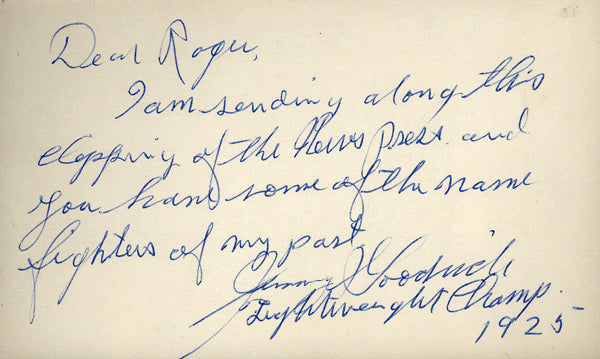 Dear Roger,
I am sending along this
clipping of the News Press and
you have some of the name
fighters of my past
Jimmy Goodrich
Lightweight Champ.
1925